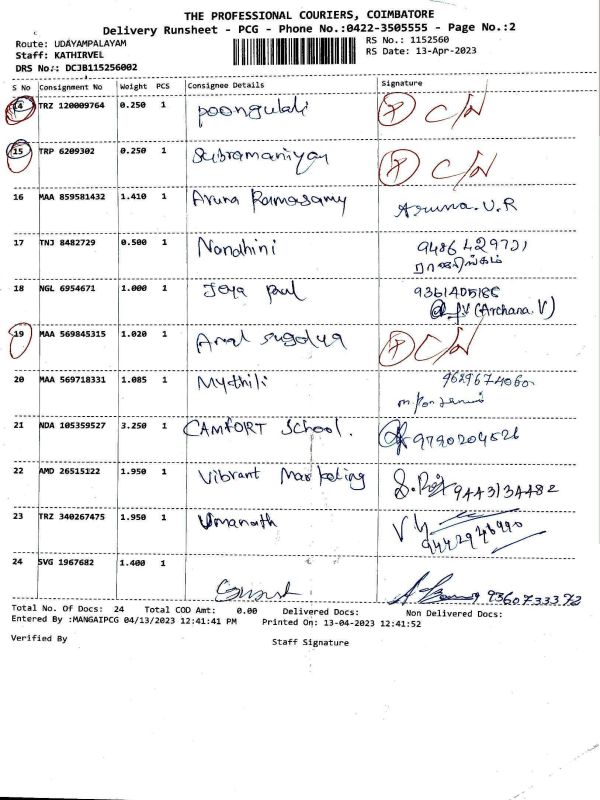 THE PROFESSIONAL COURIERS, COIMBATORE
Delivery Runsheet - PCG - Phone No.:0422-3505555 - Page No.:2
Route: UDAYAMPALAYAM RS No.: 1152560
Staff: KATHIRVEL RS Date: 13-Apr-2023
DRS No.: DCJB115256002
S No Consignment No Weight PCS Consignee Details Signature
14 TRZ 120009764 0.250 1 Poongulali C/N
15 TRP 6209302 0.250 1 Subramaniyan C/N
16 MAA 859581432 1.410 1 Aruna Ramasamy Aruna.U.R
17 TNJ 8482729 0.500 1 Nandhini 9486429721
18 NGL 6954671 1.000 1 Jeya paul 9361405186
(Archana.V)
19 MAA 569845315 1.020 1 C/N
20 MAA 569718331 1.085 1 Mythili 9629674060
21 NDA 105359527 3.250 1 CAMFORT School. 9790204526
22 AMD 26515122 1.950 1 Vibrant Marketing 9443134482
23 TRZ 340267475 1.950 1 Umanath
24 SVG 1967682 1.400 1 9360733372
Total No. Of Docs: 24 Total COD Amt: 0.00 Delivered Docs: Non Delivered Docs:
Entered By :MANGAIPCG 04/13/2023 12:41:41 PM Printed On: 13-04-2023 12:41:52
Verified By Staff Signature